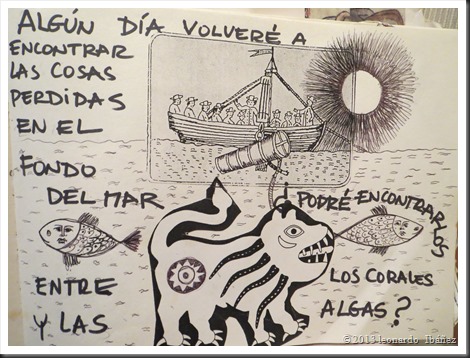 ALGÚN DÍA VOLVERÉ A
ENCONTRAR
LAS COSAS
PERDIDAS
EN EL
FONDO
DEL MAR
¿PODRÉ ENCONTRARLOS
ENTRE
LOS CORALES
Y LAS
ALGAS?
© 2013 leonardo Ibáñez